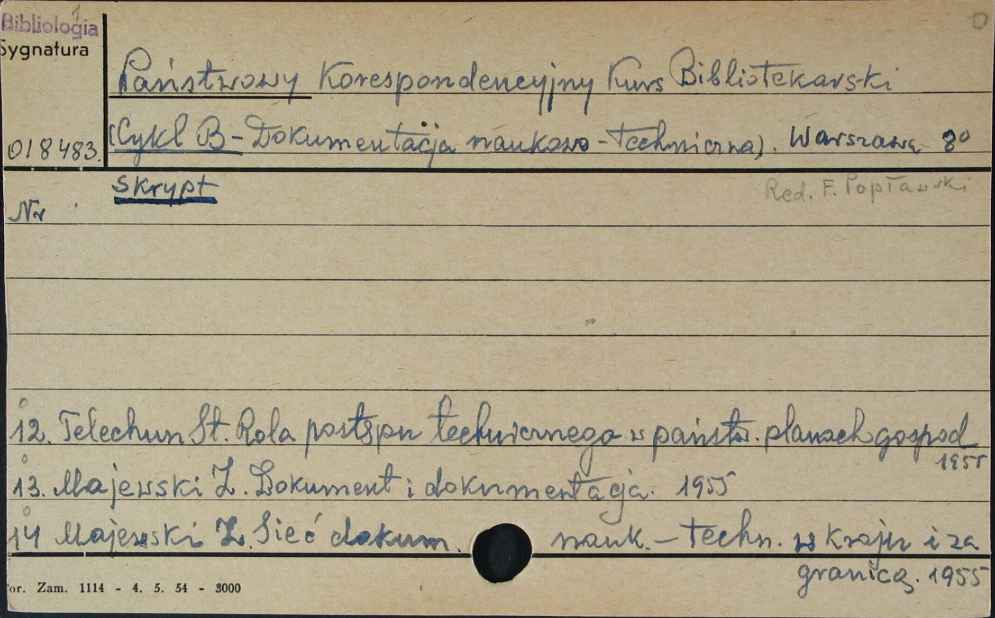 Bibliologia
Sygnatura
Państwowy Korespondencyjny Kurs Bibliotekarski
018483. (Cykl B – Dokumentacja naukowo – techniczna). Warszawa 8°
Skrypt
Red. F. Popławski
Nr
12. Telechun St. Rola postępu technicznego w państw. planach gospod
1955
13. Majewski Z. Dokument i dokumentacja. 1955
14 Majewski Z. Sieć dokum. nauk. – techn. w kraju i za
granicą. 1955
or. Zam. 1114 - 4. 5. 54 - 3000